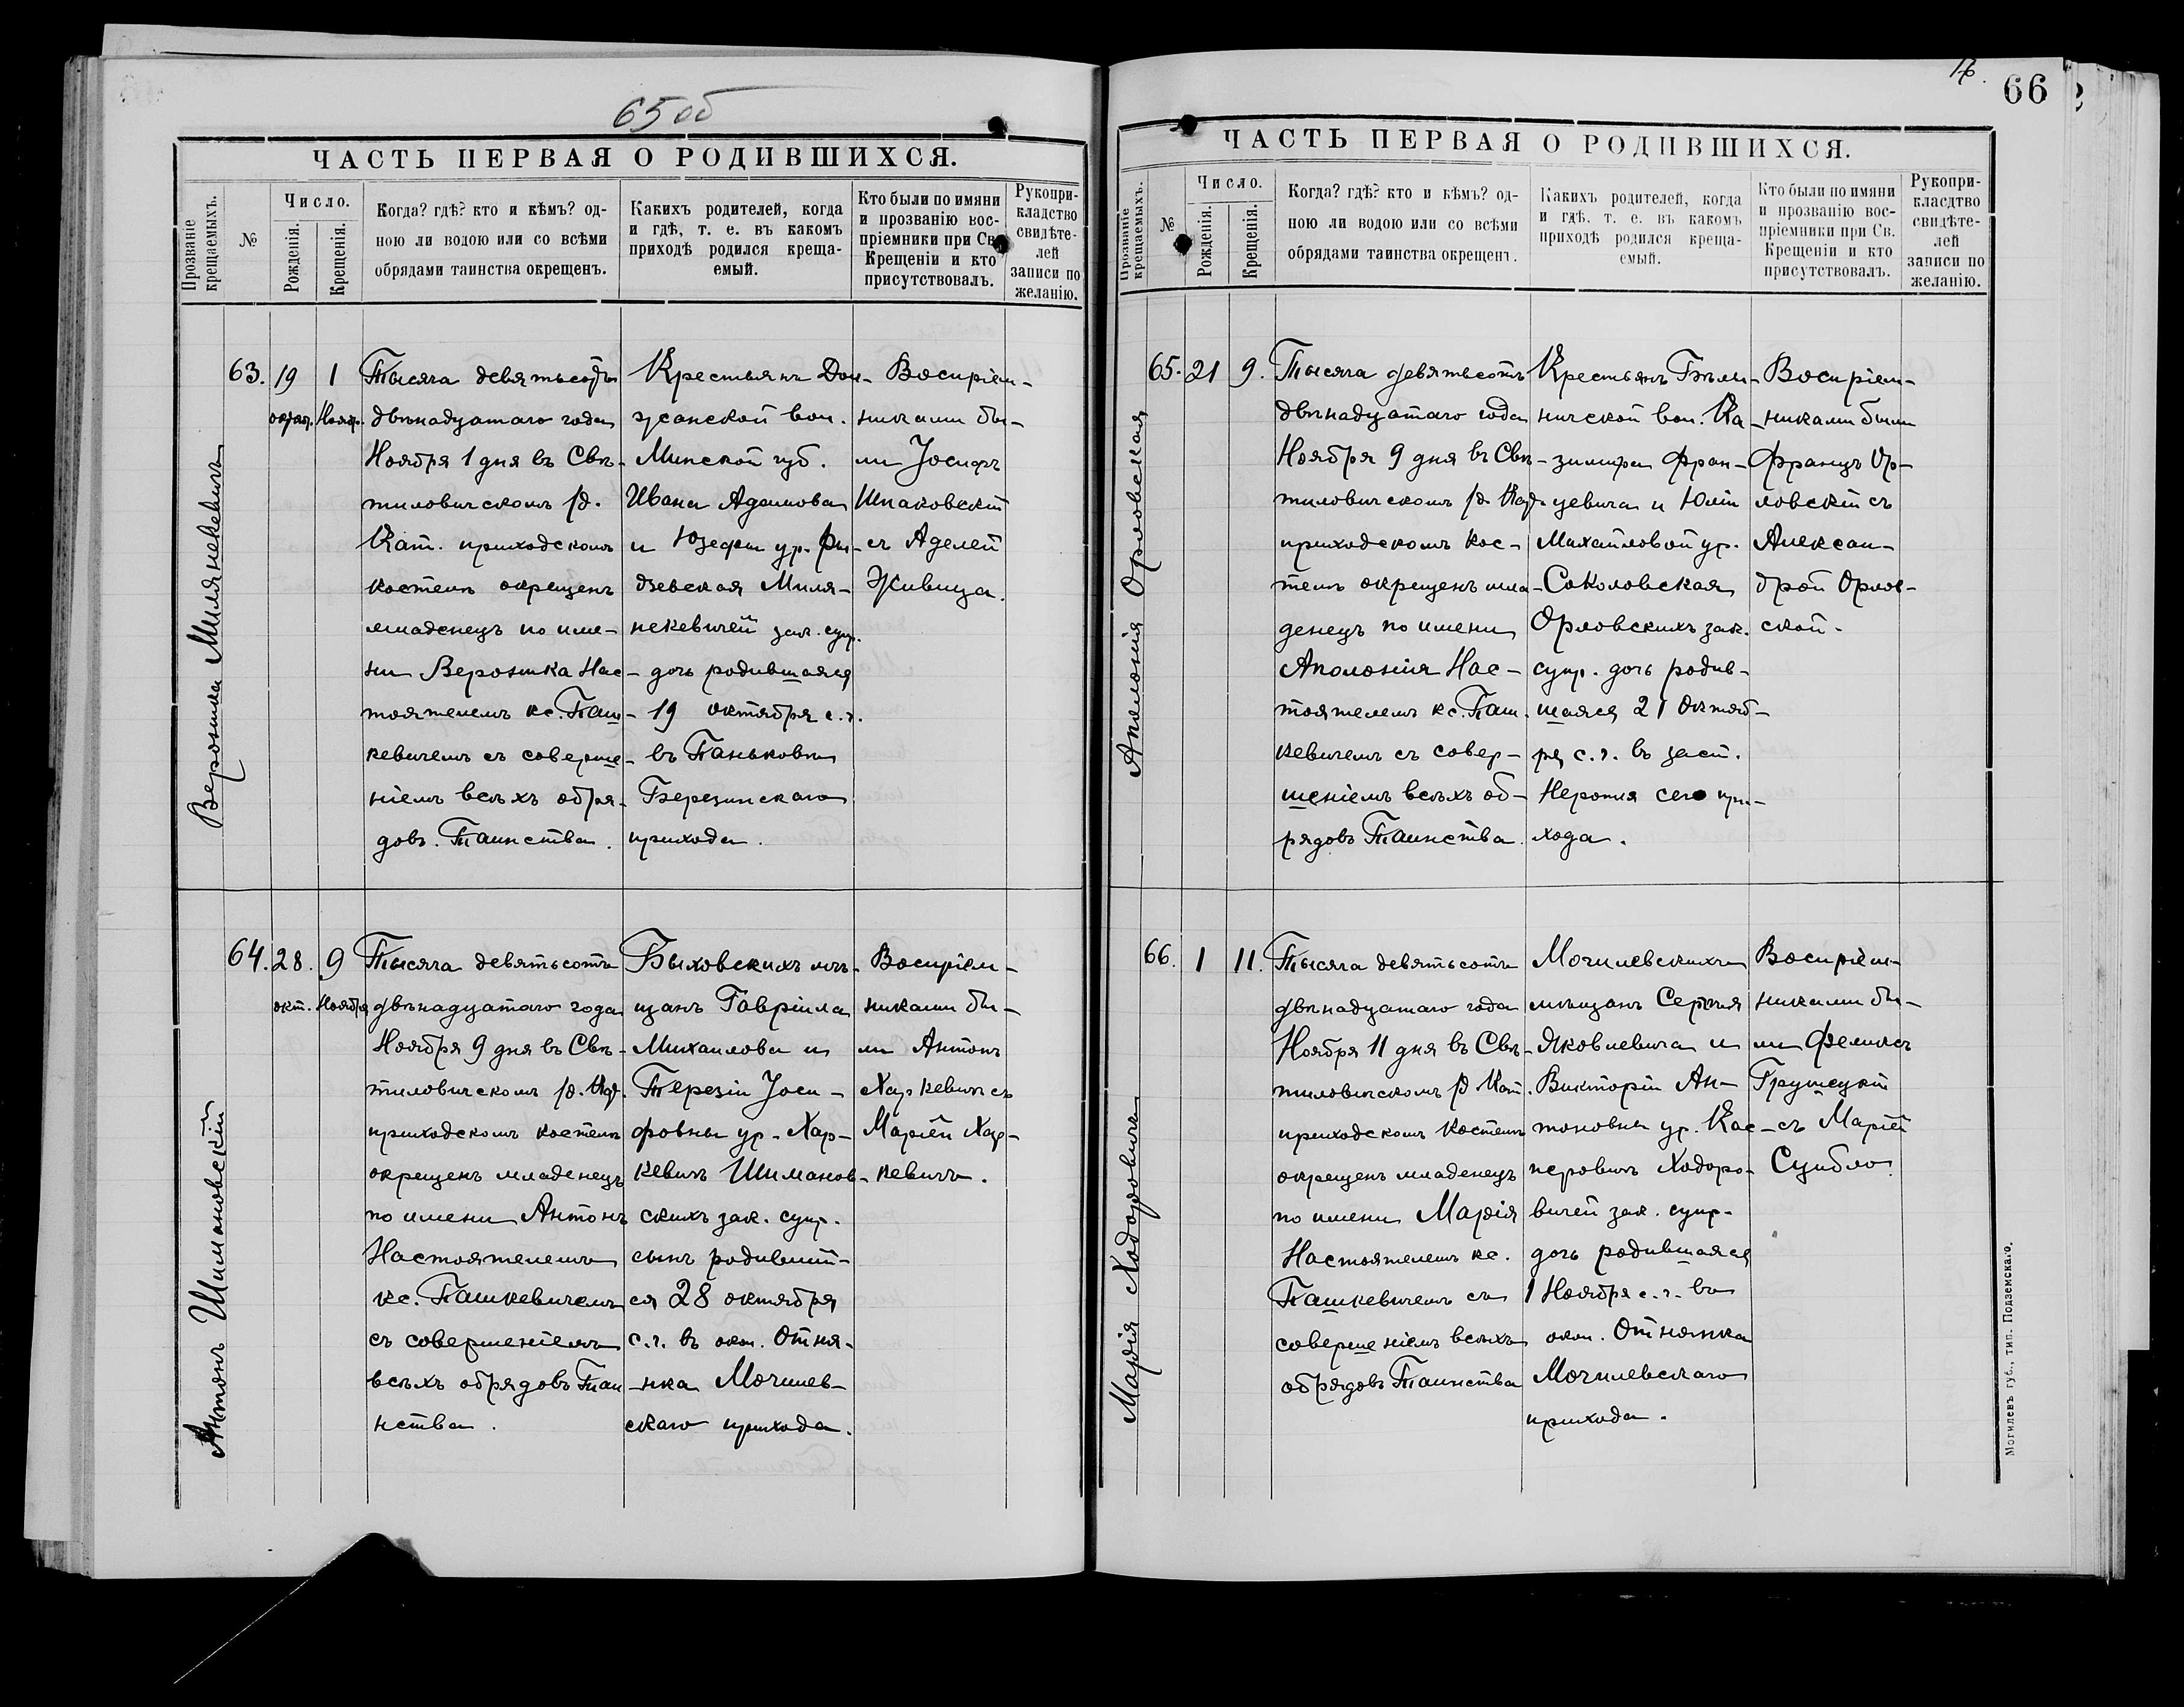 65 об
ЧАСТЬ ПЕРВАЯ О РОДИВШИХСЯ.
Прозваніе крещаемыхъ.
№
Число.
Рожденія.
Крещенія.
Когда? гдѣ? кто и кѣмъ? од-
ною ли водою или со всѣми
обрядами таинства окрещенъ.
Какихъ родителей, когда
и гдѣ, т. е. въ какомъ
приходѣ родился креща-
емый.
Кто были по имяни
и прозванію вос-
пріемники при Св.
Крещеніи и кто
присутствовалъ.
Рукопри-
кладство
свидѣте-
лей
записи по
желанію.
Вероника Милянкевичъ
63.
19
октяб.
1
Ноябр.
Тысяча девятьсотъ
двѣнадцатаго года
Ноября 1 дня въ Свѣ-
тиловичскомъ р.
Кат. приходскомъ
костелѣ окрещенъ
младенецъ по име-
ни Вероника Нас-
тоятелемъ кс. Паш-
кевичемъ съ соверше-
ніемъ всѣхъ обря-
довъ Таинства.
Крестьянъ Дол-
жанской вол.
Минской губ.
Ивана Адамова
и Юзефы ур. Фы-
дзевская Миля-
некевичей зак. супр.
дочь родившаяся
19 октября с.г.
въ Паньковкѣ
Березинскаго
прихода.
Воспріем-
никами бы-
ли Іосифъ
Шпаковскій
съ Аделей
Живица.
Антонъ Шимановскій
64.
28.
окт.
9
Ноября
Тысяча девятьсотъ
двѣнадцатаго года
Ноября 9 дня въ Свѣ-
тиловичскомъ р. Кат.
приходскомъ костелѣ
окрещенъ младенецъ
по имени Антонъ
Настоятелемъ
кс. Пашкевичемъ
съ совершеніемъ
всѣхъ обрядовъ Таи
нства.
Быховскихъ мѣ-
щанъ Гавріила
Михаилова и
Терезіи Іоси-
фовны ур. Хар-
кевичъ Шиманов-
скихъ зак. супр.
сынъ родившій-
ся 28 октября
с.г. въ окол. Отня-
нка Могилев-
скаго прихода.
Воспріем-
никами бы-
ли Антонъ
Харкевичъ съ
Маріей Хар-
кевичъ.
16.
66
ЧАСТЬ ПЕРВАЯ О РОДИВШИХСЯ.
Прозваніе крещаемыхъ.
№
Число.
Рожденія.
Крещенія.
Когда? гдѣ? кто и кѣмъ? од-
ною ли водою или со всѣми
обрядами таинства окрещенъ.
Какихъ родителей, когда
и гдѣ, т. е. въ какомъ
приходѣ родился креща-
емый.
Кто были по имяни
и прозванію вос-
пріемники при Св.
Крещеніи и кто
присутствовалъ.
Рукопри-
класдтво
свидѣте-
лей
записи по
желанію.
Аполонія Орловская
65.
21
9.
Тысяча девятьсотъ
двѣнадцатаго года
Ноября 9 дня въ Свѣ-
тиловичскомъ р. Кат.
приходскомъ кос-
телѣ окрещенъ мла-
денецъ по имени
Аполонія Нас-
тоятелемъ кс. Паш-
кевичемъ съ совер-
шеніемъ всѣхъ об-
рядовъ Таинства.
Крестьянъ Бѣлы-
ничской вол. Ка-
зимира Фран-
цевича и Юліи
Михайловой ур.
Соколовская
Орловскихъ зак.
супр. дочь родив-
шаяся 21 Октяб-
ря с.г. въ заст.
Неропля сего при-
хода.
Воспріем-
никами были
Францъ Ор-
ловскій съ
Алексан-
дрой Орлов-
ской.
Марія Ходоровичъ
66.
1
11.
Тысяча девятьсотъ
двѣнадцатаго года
Ноября 11 дня въ Свѣ-
тиловичскомъ р Кат.
приходскомъ костелѣ
окрещенъ младенецъ
по имени Марія
Настоятелемъ кс.
Пашкевичемъ съ
совершеніемъ всѣхъ
обрядовъ Таинства
Могилевскихъ
мѣщанъ Сергѣя
Яковлевича и
Викторіи Ан-
тоновны ур. Кас-
перовичъ Ходоро-
вичей зак. супр.
дочь родившаяся
1 Ноября с.г. въ
окол. Отнянка
Могилевскаго
прихода.
Воспріем-
никами бы-
ли Феликсъ
Грушецкій
съ Маріей
Сцибло.
Могилевъ губ., тип. Подземскаго.